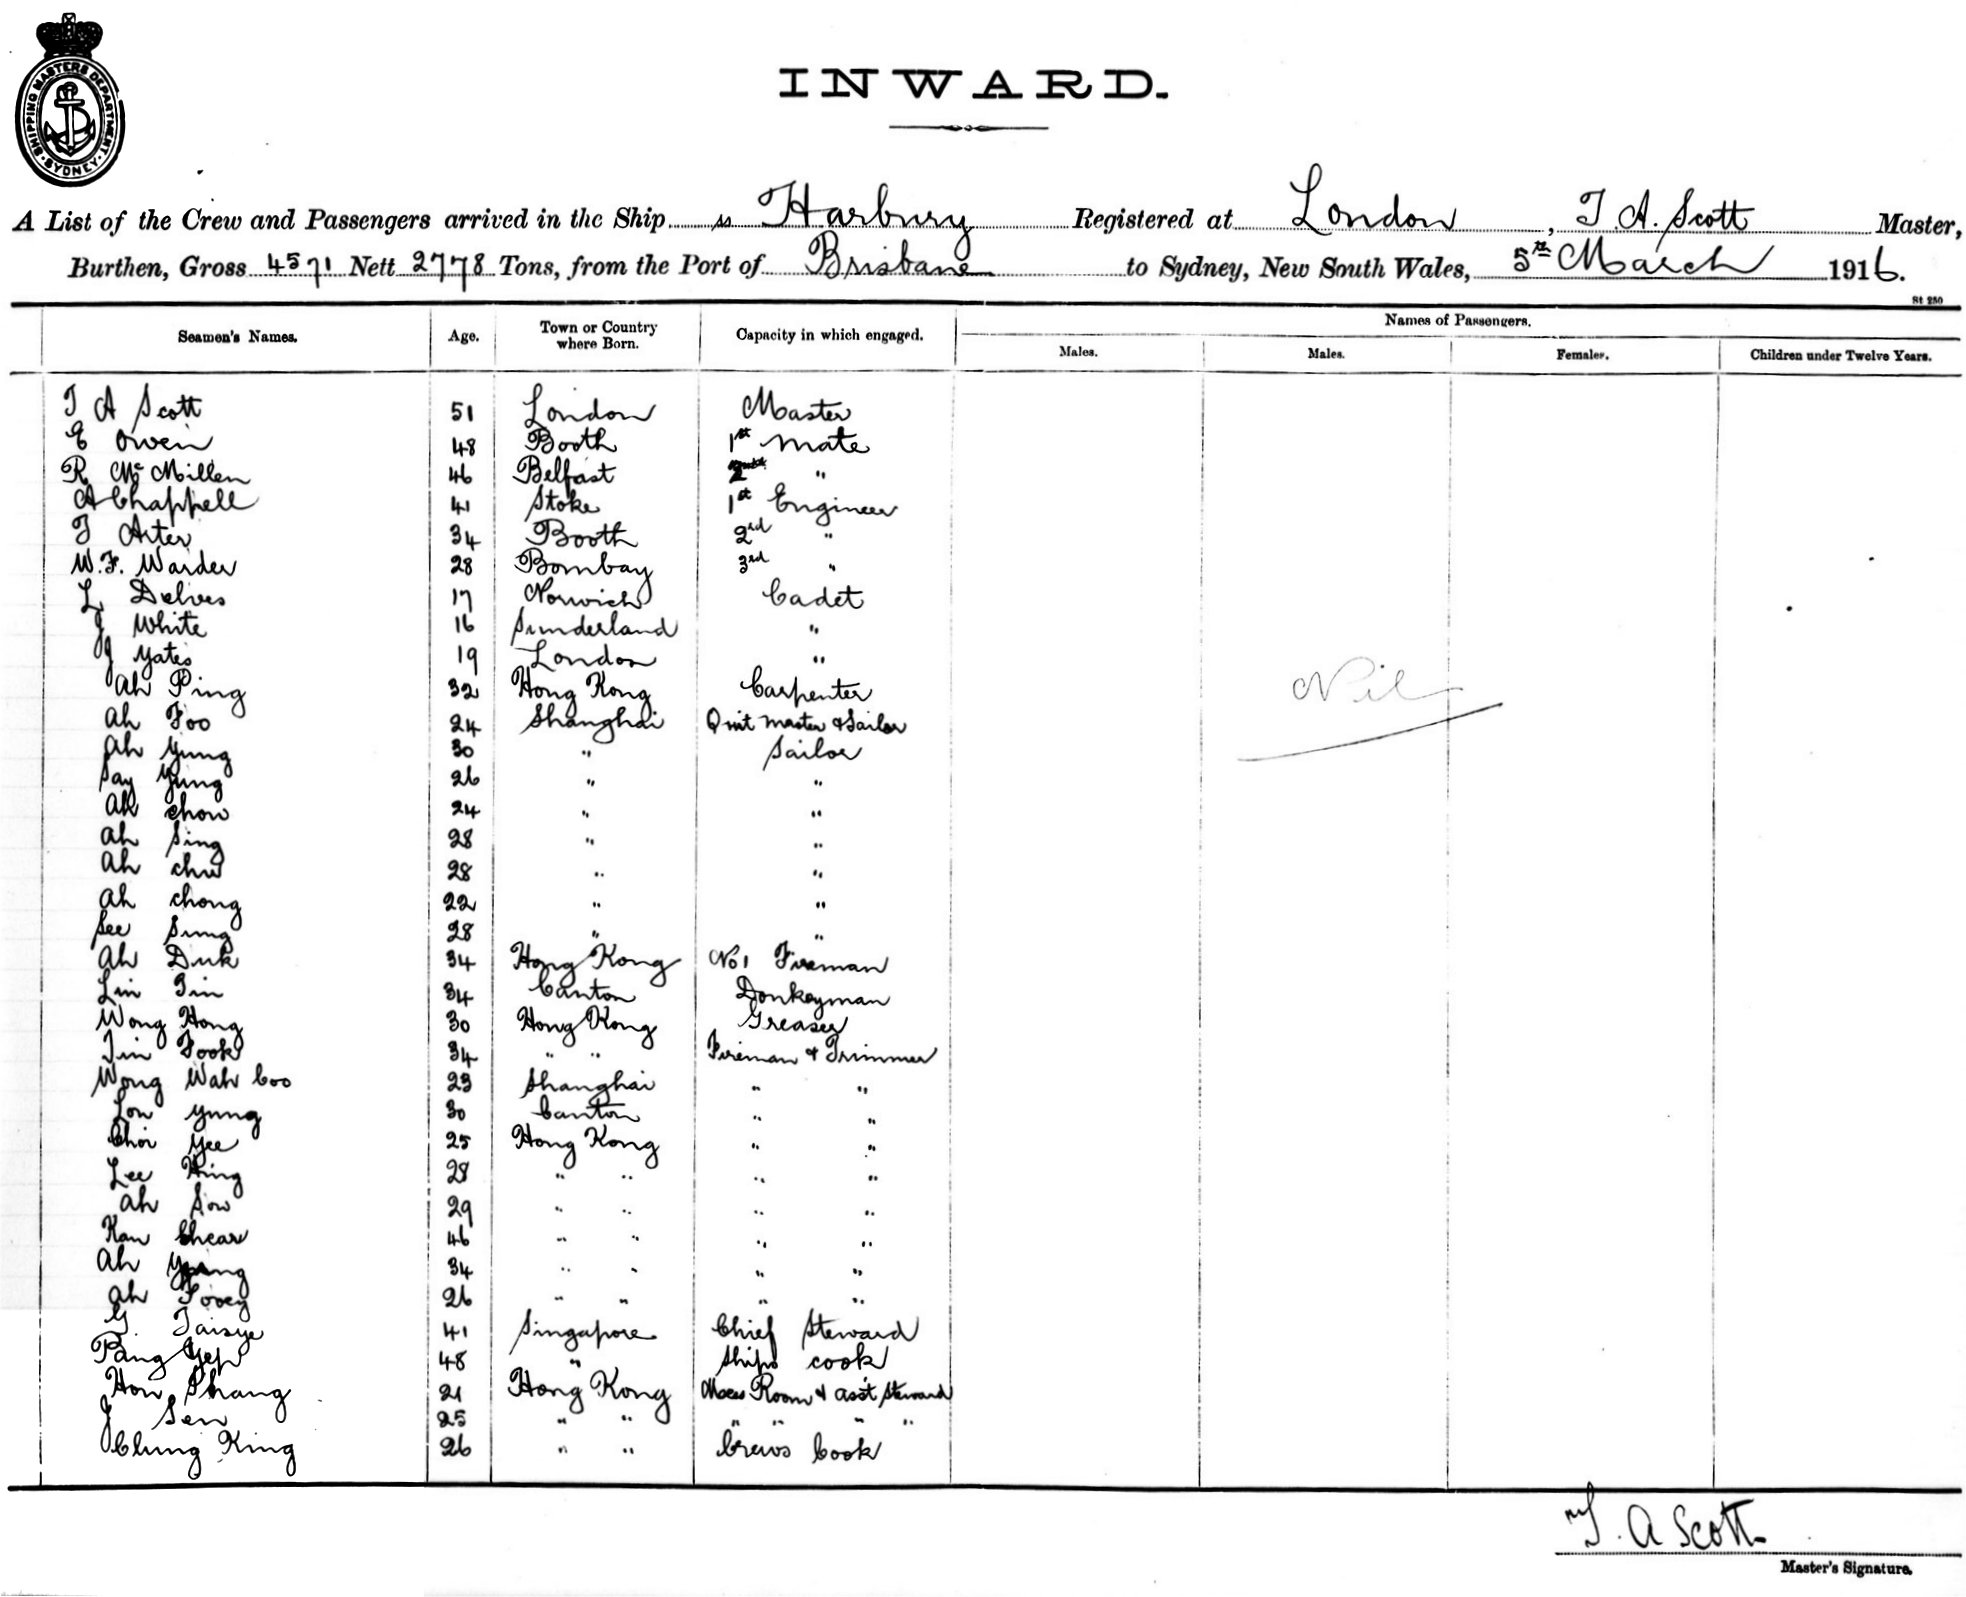 SHIPPING MASTERS DEPARTMENT. SYDNEY.
INWARD.
A List of the Crew and Passengers arrived in the Ship ss Harbury Registered at London, T. A. Scott Master,
Burthen, Gross 4571 Nett 2778 Tons, from the Port of Brisbane to Sydney, New South Wales, 5th March 1916.
St 250
Seamen's Names. Age. Town or Country where Born. Capacity in which engaged. Names of Passengers.
Males. Males. Females. Children under Twelve Years.
T A Scott 51 London Master
E Owen 48 Booth 1st Mate
R McMillen 46 Belfast 2nd "
A Chappell 41 Stoke 1st Engineer
T Arter 34 Booth 2nd "
W. F. Warder 28 Bombay 3rd "
L Delves 17 Norwich Cadet
J White 16 Sunderland "
J Yates 19 London "
Ah Ping 32 Hong Kong Carpenter
Nil
Ah Foo 24 Shanghai Qrt Master & Sailor
Ah Yung 30 " Sailor
Say Yung 26 " "
Ah Chow 24 " "
Ah Sing 28 " "
Ah Chu 28 " "
Ah Chong 22 " "
See Sung 28 " "
Ah Duk 34 Hong Kong No 1 Fireman
Lin Tin 34 Canton Donkeyman
Wong Hong 30 Hong Kong Greaser
Tin Fook 34 " " Fireman & Trimmer
Wong Wah Coo 23 Shanghai " "
Low Yung 30 Canton " "
Choi Yee 25 Hong Kong " "
Lee Hing 28 " " " "
Ah Sow 29 " " " "
Kan Chear 46 " " " "
Ah 34 " " " "
Ah 26 " " " "
G Taisye 41 Singapore Chief Steward
Pang Yep 48 " Ships Cook
Hon Shang 21 Hong Kong Mess Room & Asst Steward
J Sen 25 " " " " " "
Chung King 26 " " Crews Cook
T. A Scott
Master's Signature.